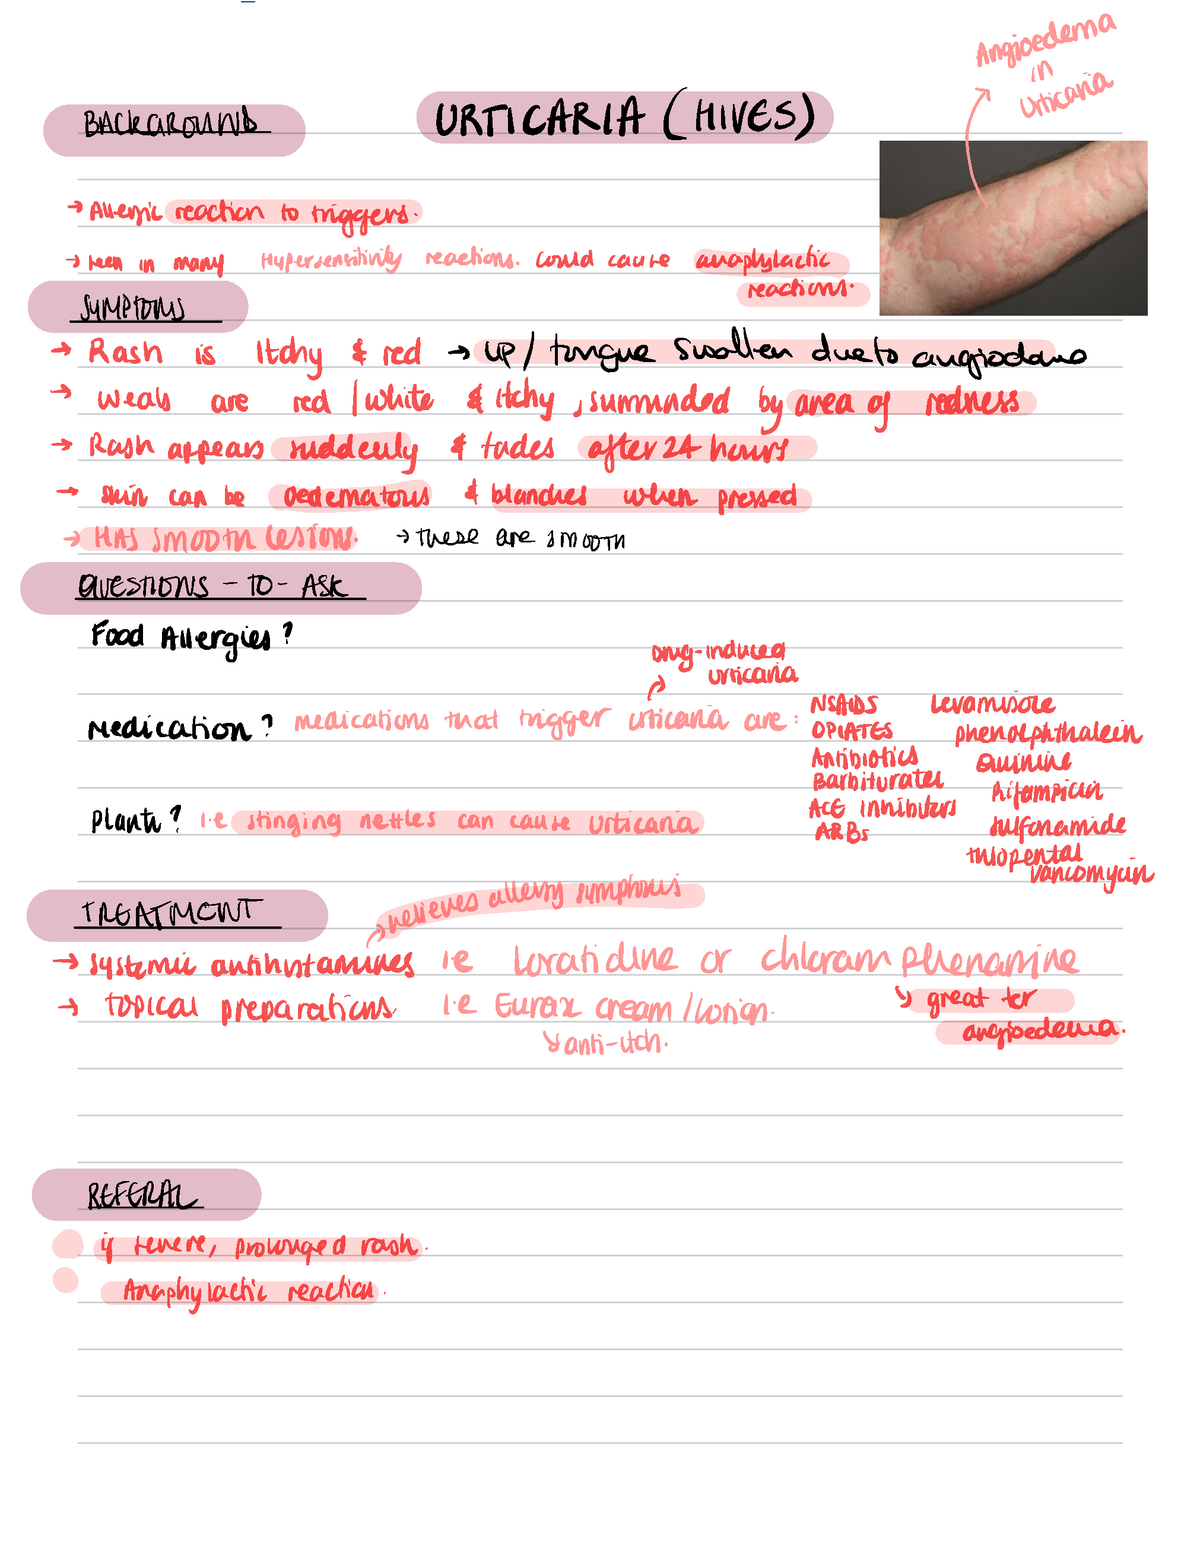 Angioedema
in
Urticaria
BACKGROUND
URTICARIA (HIVES)
→ Allergic reaction to triggers.
→ seen in many Hypersensitivity reactions. Could cause anaphylactic
reactions.
SYMPTOMS
→ Rash is Itchy & red → Lip / tongue swollen due to angioedema
→ Weals are red / white & itchy, surrounded by area of redness
→ Rash appears suddenly & fades after 24 hours
→ skin can be oedematous & blanches when pressed
→ HAS SMOOTH LESIONS. → these are smooth
QUESTIONS - TO - ASK
Food Allergies?
Drug-induced
urticaria
Medication? medications that trigger urticaria are:
NSAIDS Levamisole
OPIATES phenolphthalein
Antibiotics Quinine
Barbiturates Rifampicin
ACE inhibitors
ARBs sulfonamide
thiopental
vancomycin
Plants? i.e stinging nettles can cause urticaria
TREATMENT
→ relieves allergy symptoms
→ systemic antihistamines i.e Loratidine or chloramphenamine
→ topical preparations i.e Eurax cream / lotion.
↳ great for
angioedema.
↳ anti-itch.
REFERAL
if severe, prolonged rash.
Anaphylactic reaction.